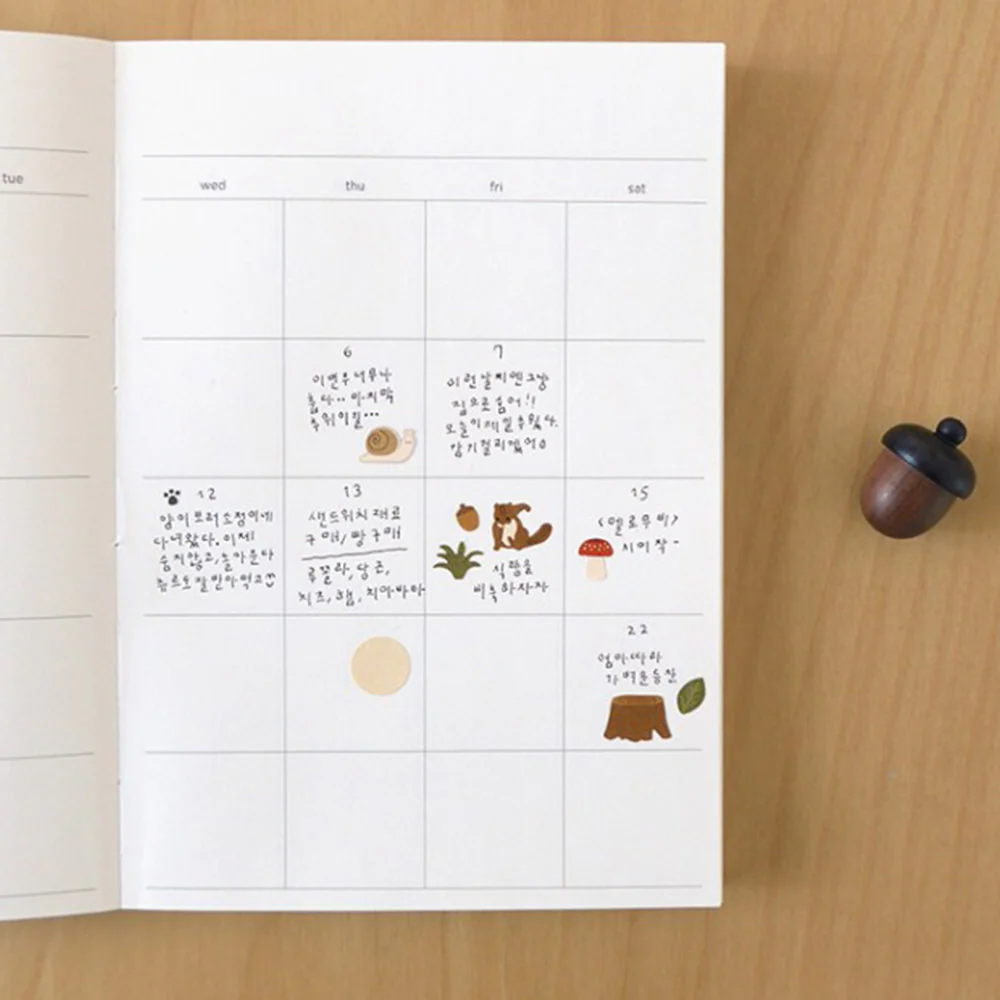 tue
wed thu fri sat
6
이번주 너무나
춥다... 마지막
추위이길...
7
이런 날씨엔 그냥
집으로 숨어!!
오늘이 제일 추웠다.
감기 걸리겠어
12
소정이네
다녀왔다. 이제
숨지않고, 돌아온다
츄르도 잘 받아먹고
13
샌드위치 재료
구매/빵구매
루꼴라, 당근,
치즈, 햄, 치아바타
식량을
비축하자자
15
<옐로우비>
시이작-
22
엄마따라
가벼운 등산